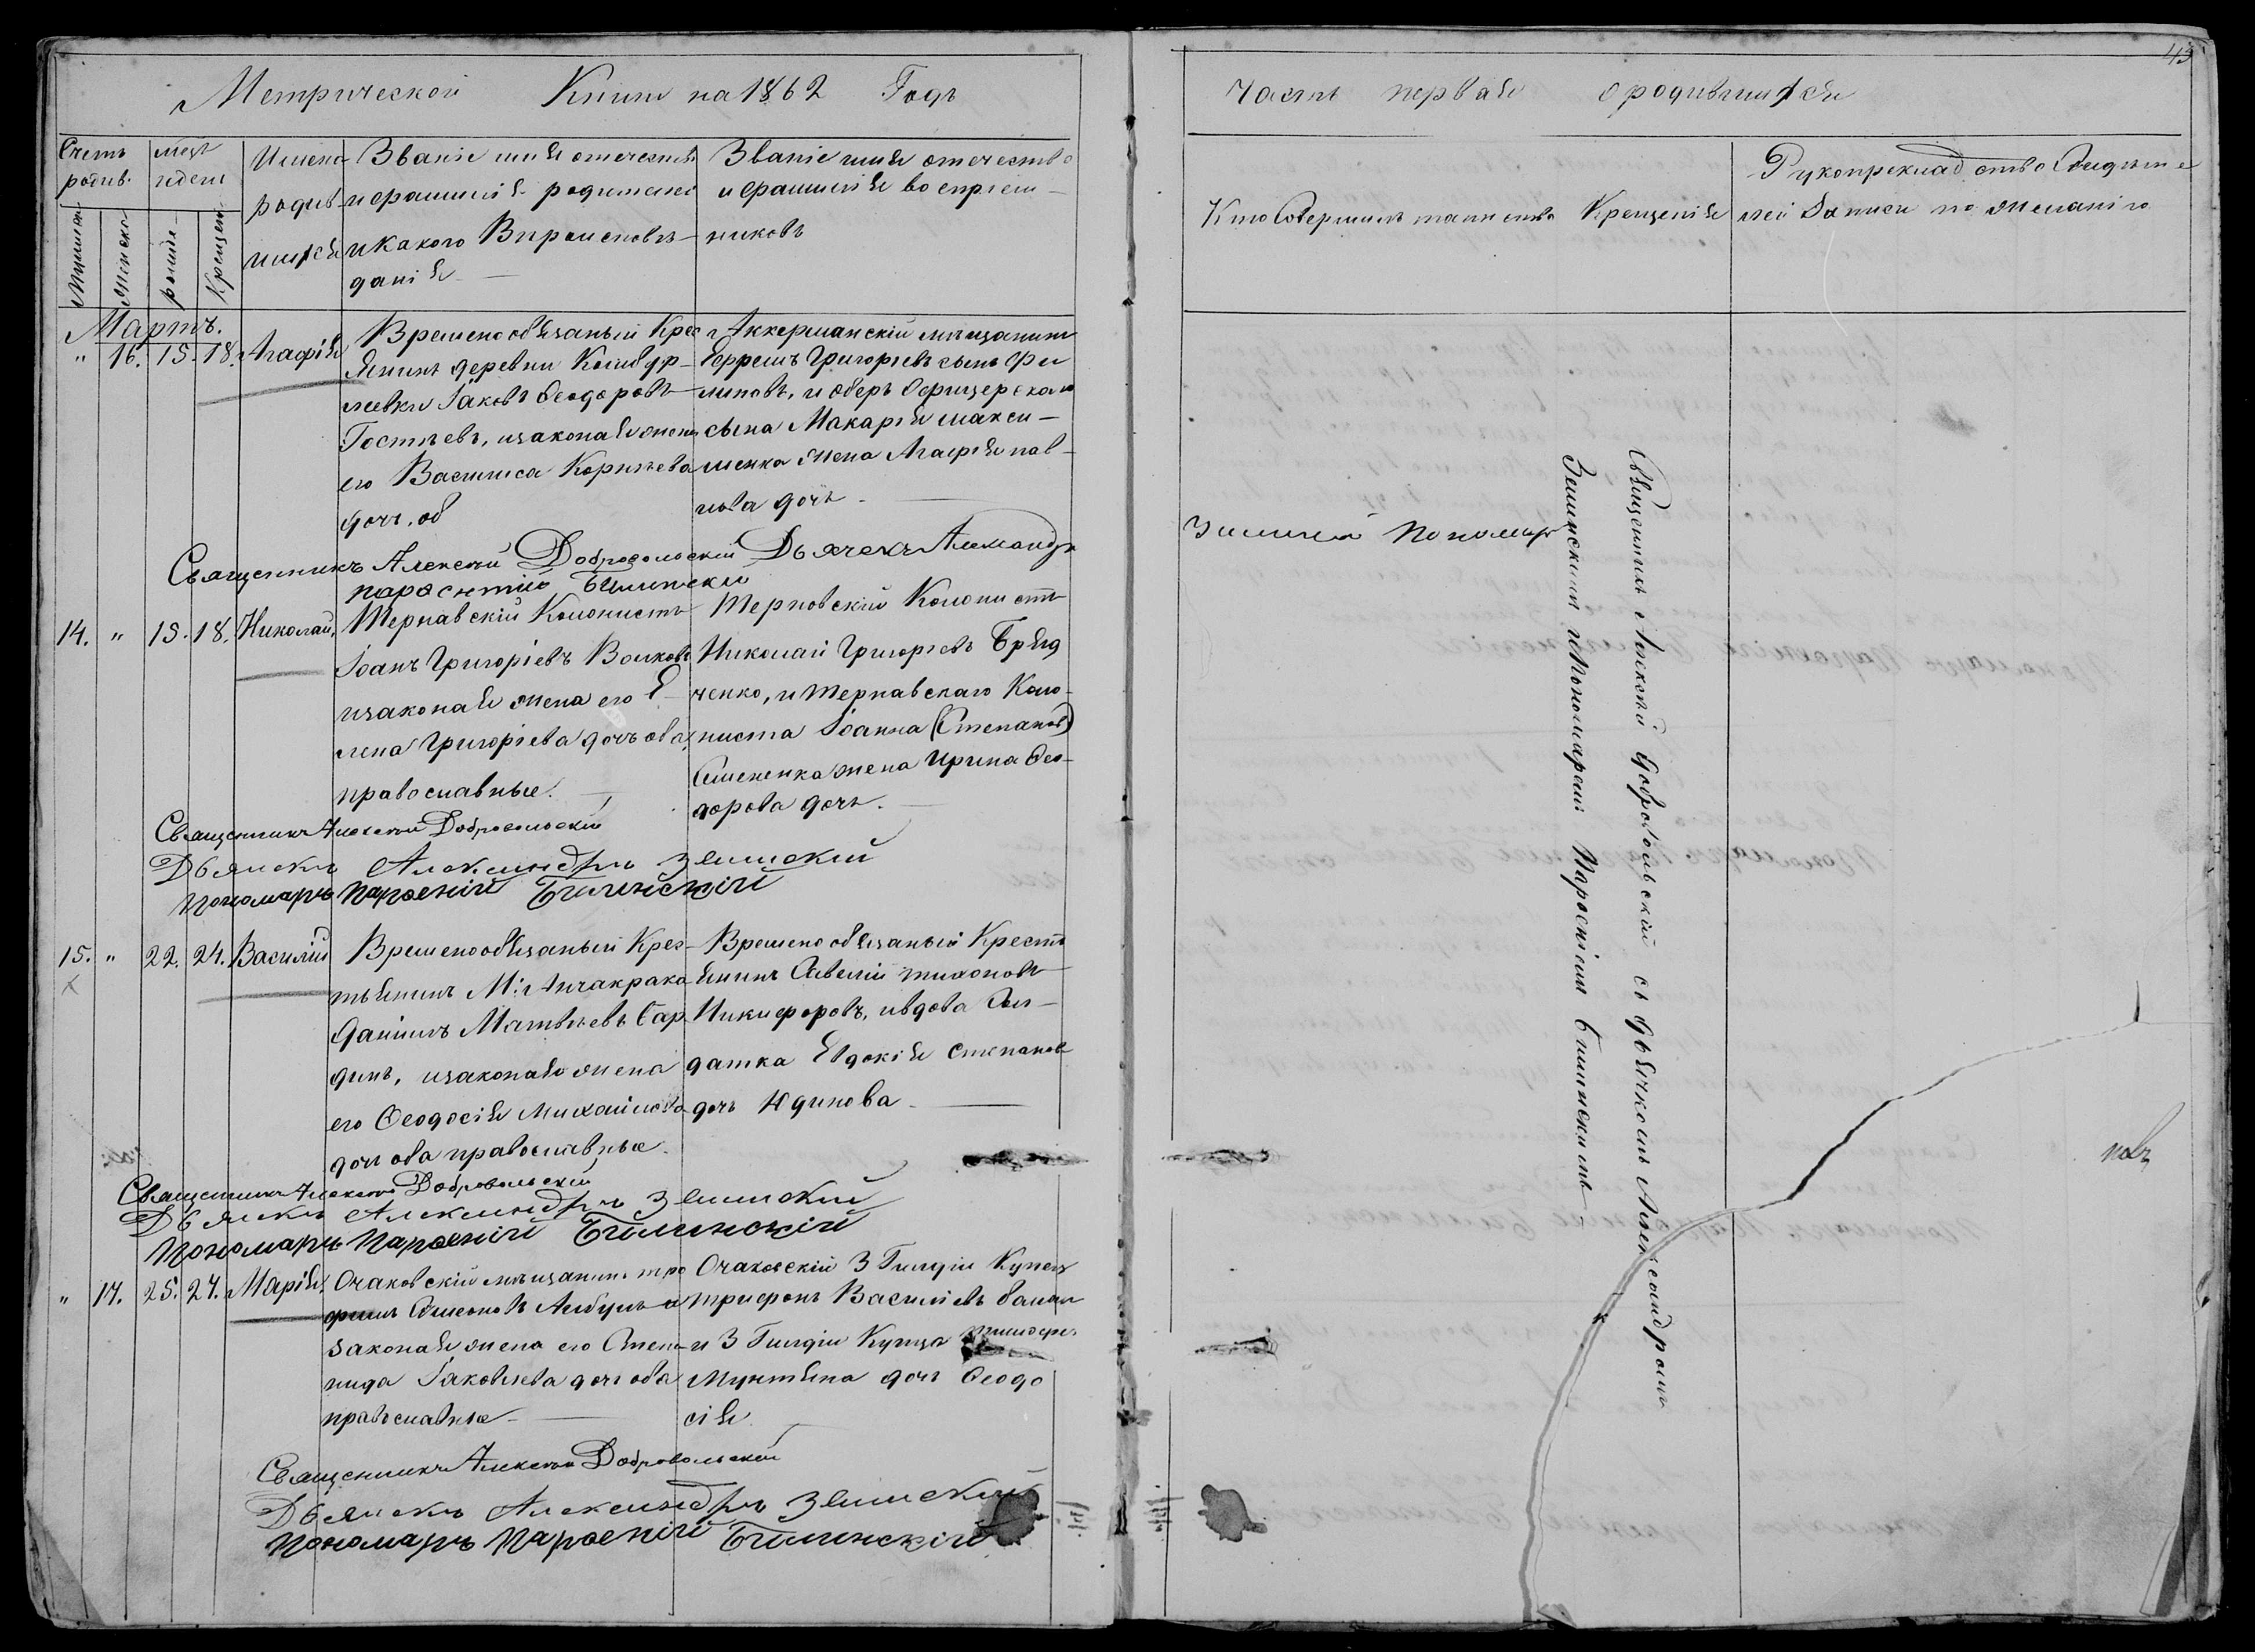 Метрической Книги на 1862 Годъ
Счетъ родив.
Мужеск.
Женска
месц и день
рожде-
Крещен.
Имена
родив-
шихся
Званіе имя отчество
и фамилія родителей
и какого Вироисповѣ-
данія
Званіе имя отчество
и фамилія воспріем-
никовъ
Мартъ.
" 16. 15. 18. Агафія
Временообязаный Крес
янинъ деревни
Іаковъ Ѳеодоровъ
Гостѣевъ, и законая жена
его Василиса Корнѣева
дочь. об
Аккерманскій мѣщанинъ
Ефремъ Григорьевъ сынъ Фи
липовъ, и оберъ офицерскаго
сына Макарія макси-
менка жена Агафія пав-
лова дочь
Священникъ Алексѣй Добровольскій Дьячекъ Александръ
парѳеній Билинскій
14. " 15. 18. Николай,
Тернавскій Колонистъ
Іоанъ Григоріевъ Волковъ
и законая жена его Е-
лена Григоріева дочь оба
православные.
Терновскій Колонистъ
Николай Григорьевъ Бряд
ченко, и тернавскаго Коло-
ниста Іоанна (Степанов)
Семененка жена Ирина Ѳео-
дорова дочь.
Священникъ Алексѣй Добровольскій
Дьячекъ Александръ Зелинскій
Пономарь Парѳеній Билинскій
15. " 22. 24. Василій
Временообязаный Крес-
тьянинъ М: Анчакрака
Даніилъ Матвѣевъ Сар
динъ, и законая жена
его Ѳеодосія Михаилова
дочь оба православные.
Временообязаный Кресть
янинъ Савелій тихоновъ
Никифоровъ, и вдова Сол-
датка Евдокія Степанов
дочь Юдинова
Священникъ Алексѣй Добровольскій
Дьячекъ Александръ Зелинскій
Пономарь Парѳеній Билинскій
" 17. 25. 27. Марія,
Очаковскій мѣщанинъ тро
фимъ Симеоновъ и
законая жена его Степа-
нида Іаковлева дочь оба
православные
Очаковскій 3 Гилдіи Купец
трифонъ Василіевъ
и 3 Гилдіи Купца
Мунтяна дочь Ѳеодо
сія
Священникъ Алексѣй Добровольскій
Дьячекъ Александръ Зелинскій
Пономарь Парѳеній Билинскій
43
Часть первая о родившихся
Кто Совершилъ таинство Крещенія
Рукоприкладство Свидѣте
лей Записи по желанію
Зелинскій Пономарь
Священникъ Алексѣй Добровольскій съ дьячкомъ Александромъ
Зелинскимъ и Пономаремъ Парѳеніемъ Билинскимъ